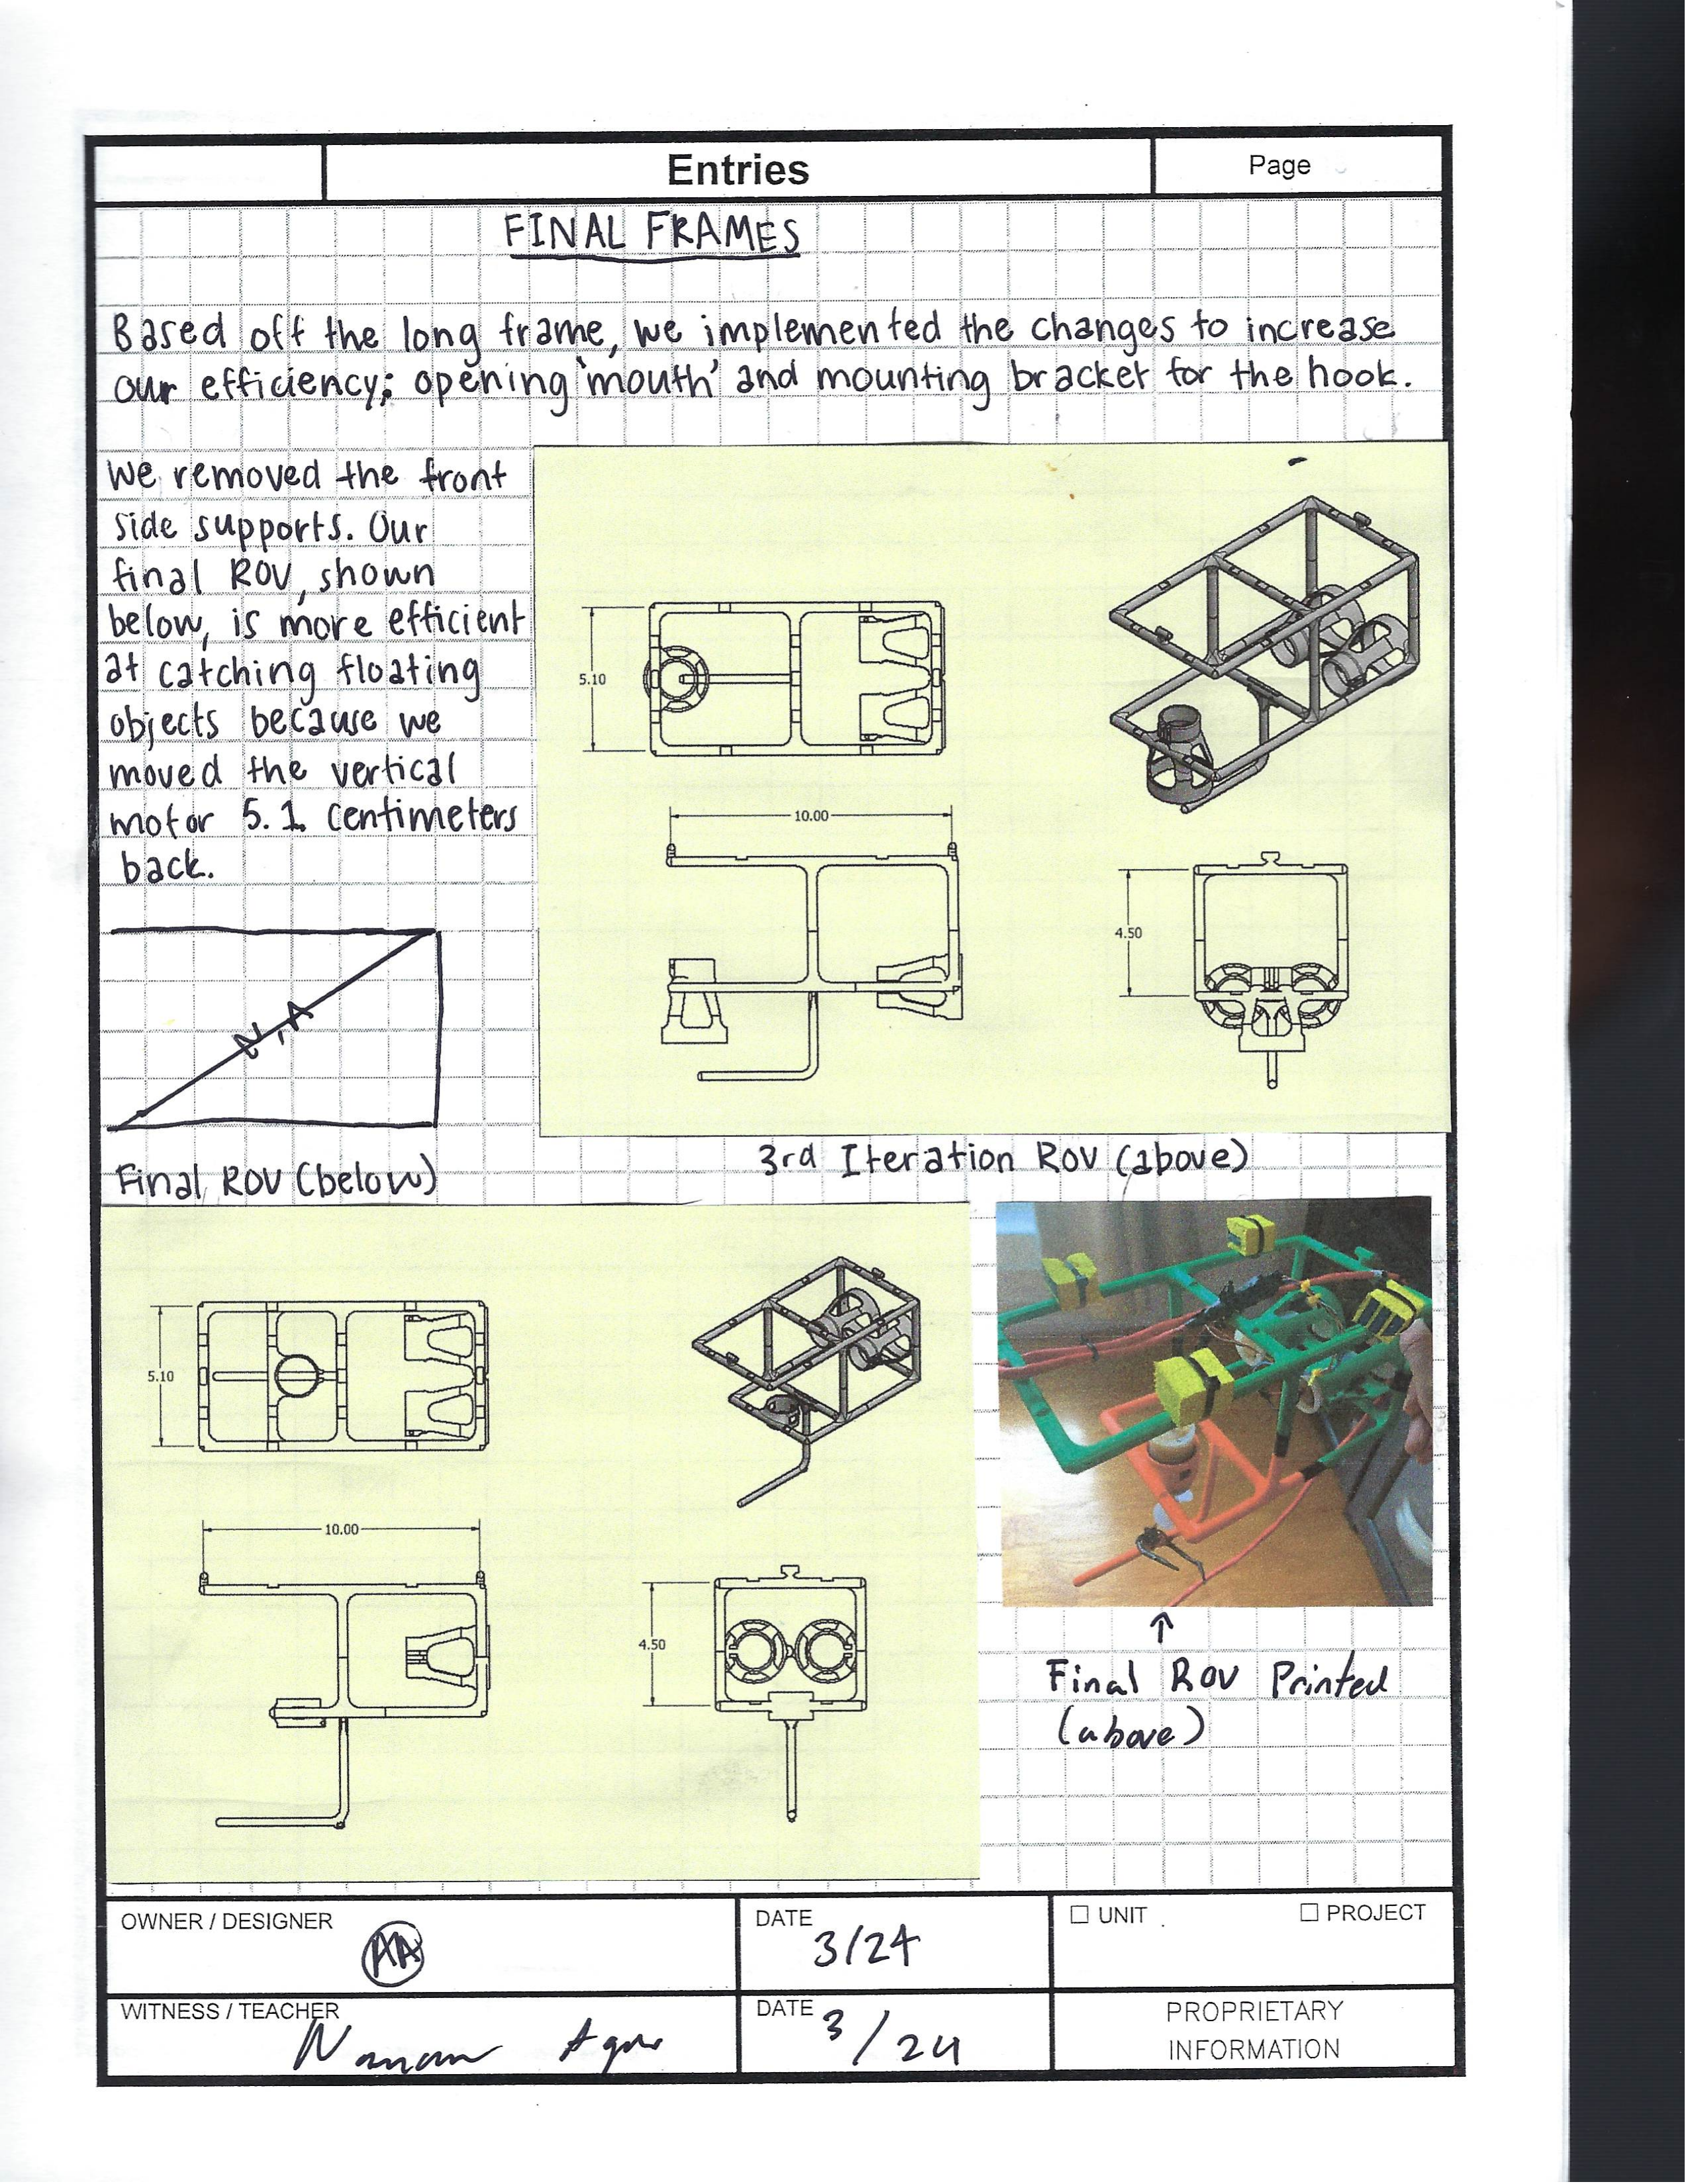 Entries
Page
FINAL FRAMES
Based off the long frame, we implemented the changes to increase
our efficiency; opening 'mouth' and mounting bracket for the hook.
We removed the front
side supports. Our
final ROV, shown
below, is more efficient
at catching floating
objects because we
moved the vertical
motor 5.1 centimeters
back.
5.10
10.00
4.50
N/A
3rd Iteration ROV (above)
Final ROV (below)
5.10
10.00
4.50
↑
Final ROV Printed
(above)
OWNER / DESIGNER
AA
DATE
3/24
☐ UNIT
☐ PROJECT
WITNESS / TEACHER
DATE
3/24
PROPRIETARY
INFORMATION